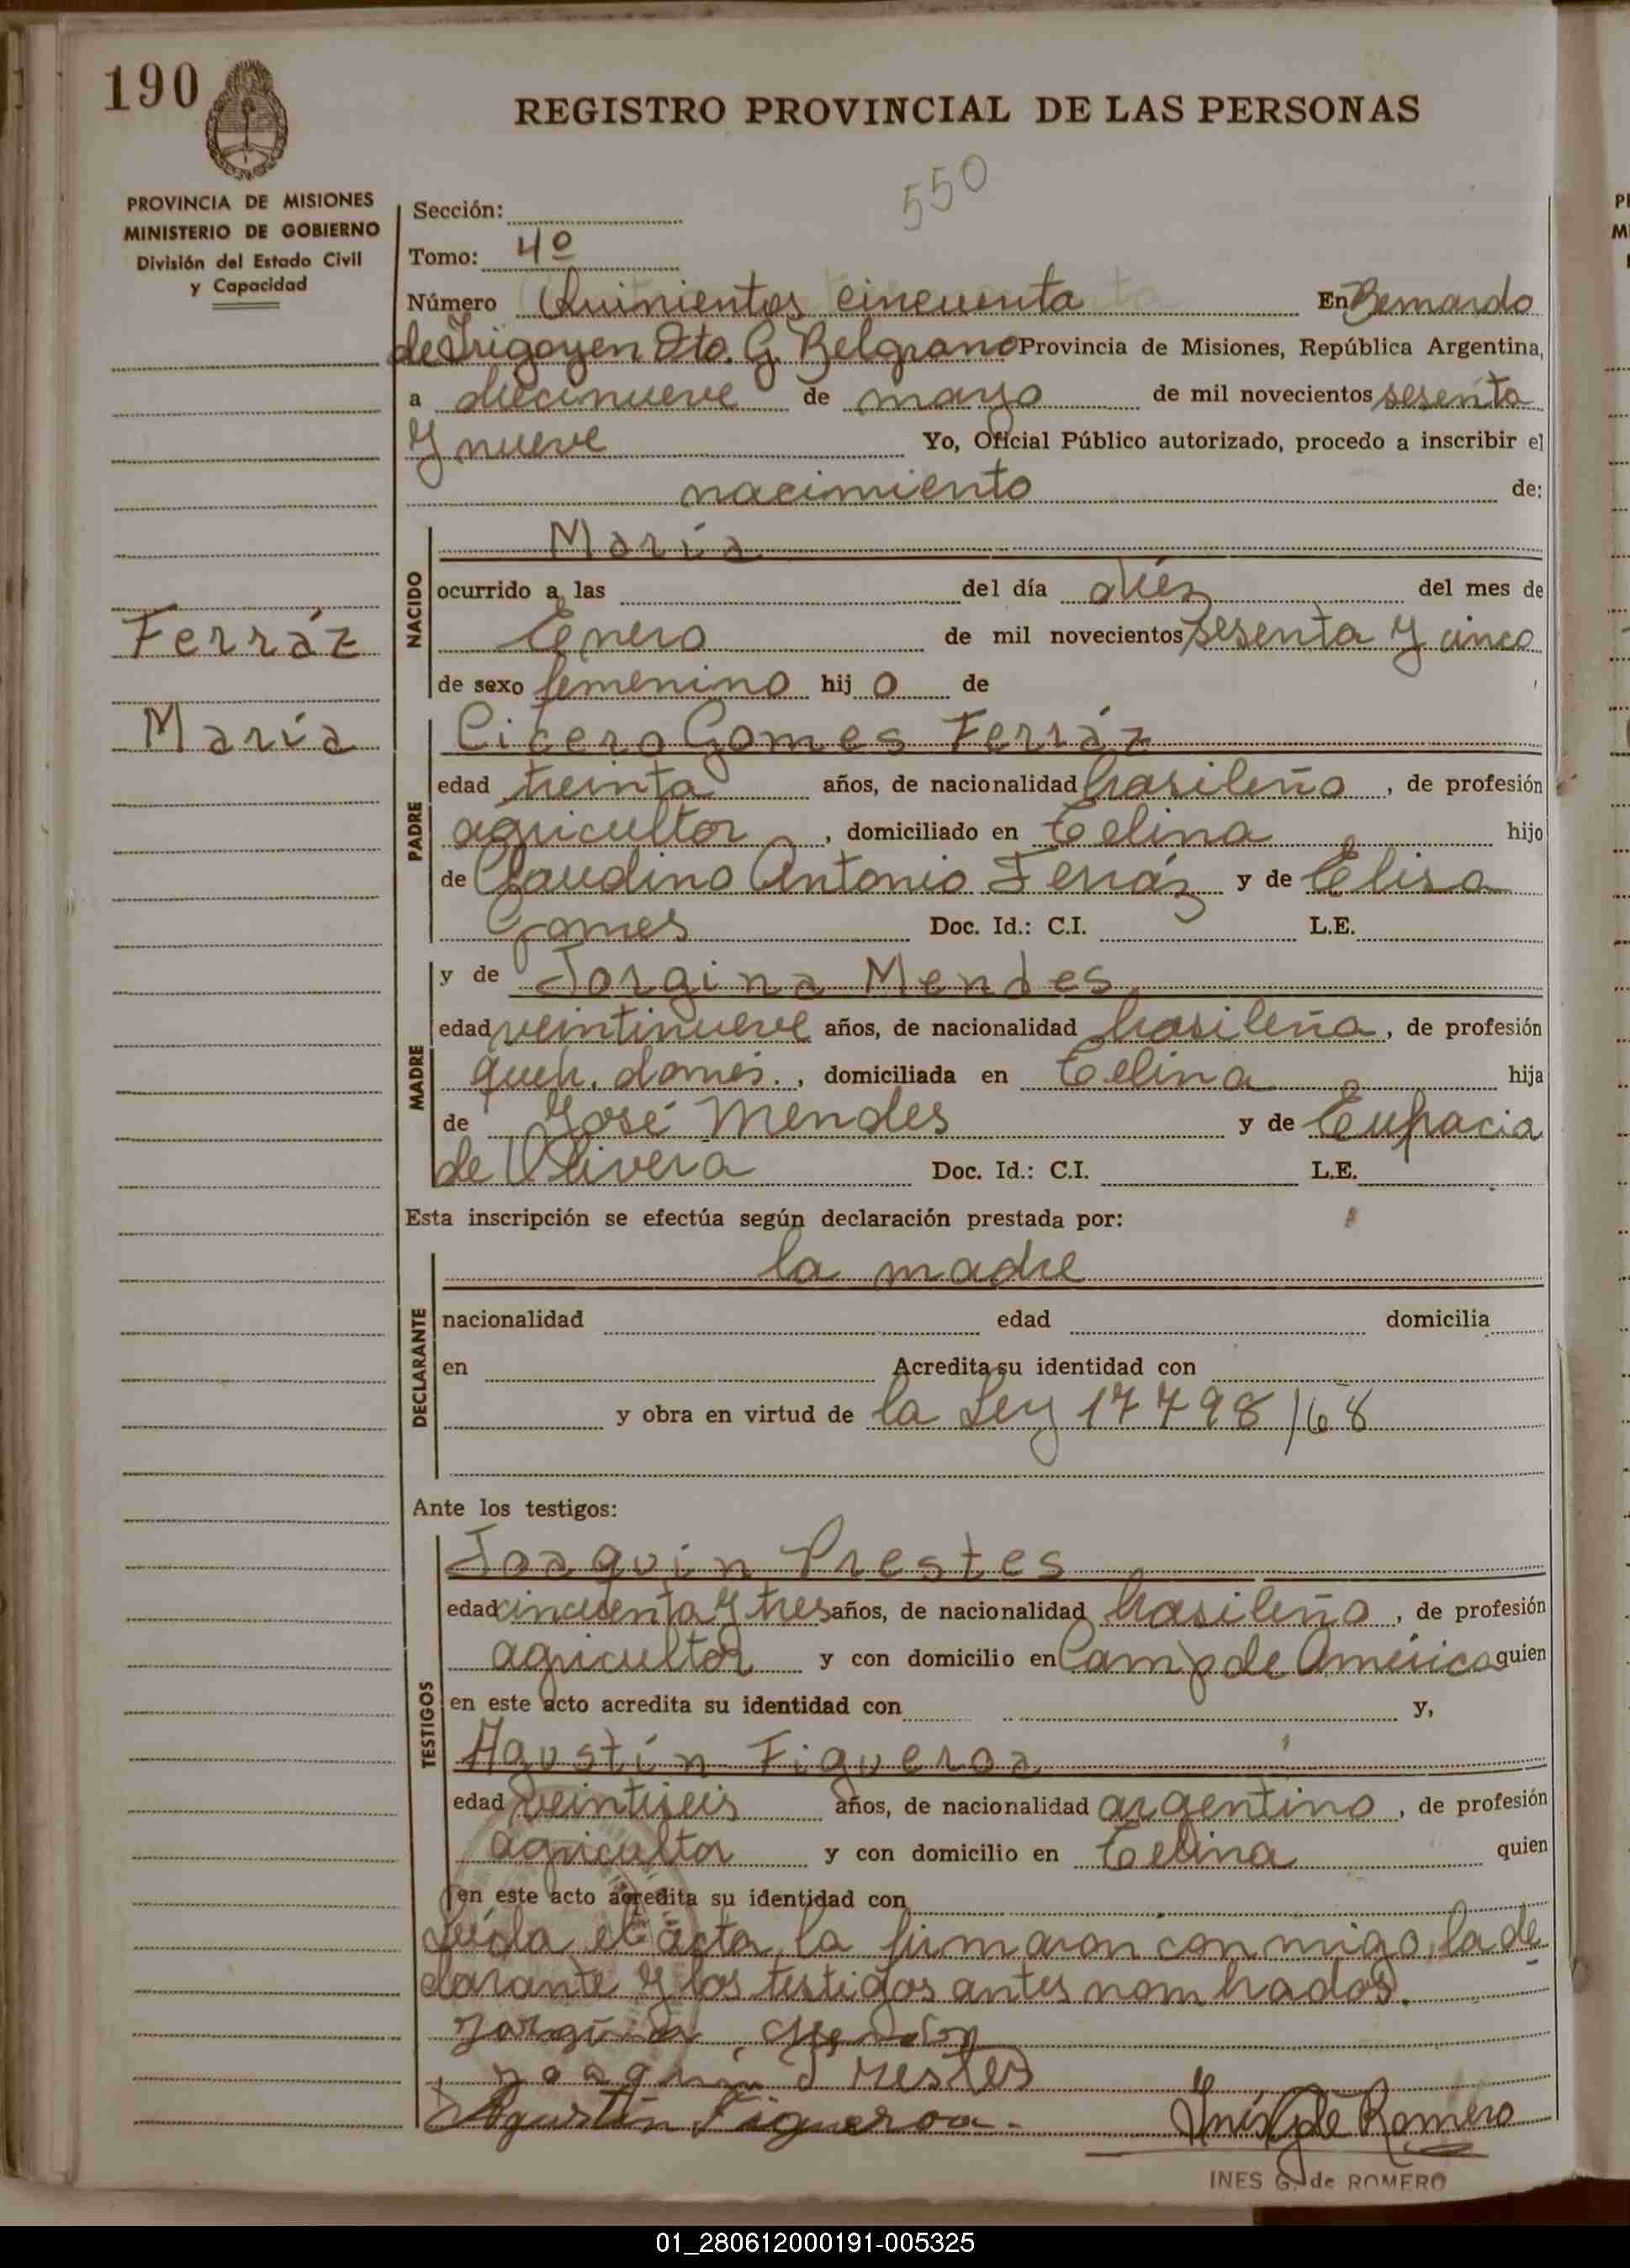 190
REGISTRO PROVINCIAL DE LAS PERSONAS
550
PROVINCIA DE MISIONES
MINISTERIO DE GOBIERNO
División del Estado Civil
y Capacidad
Sección:
Tomo: 4º
Número Quinientos cincuenta En Bernardo
de Irigoyen Dto. G. Belgrano Provincia de Misiones, República Argentina,
a diecinueve de mayo de mil novecientos sesenta
y nueve Yo, Oficial Público autorizado, procedo a inscribir el
nacimiento de:
NACIDO
María
ocurrido a las del día diéz del mes de
Ferráz
Enero de mil novecientos sesenta y cinco
de sexo femenino hij o de
María
PADRE
Cicero Gomes Ferráz
edad treinta años, de nacionalidad brasileño, de profesión
agricultor, domiciliado en Celina hijo
de Claudino Antonio Ferráz y de Elisa
Gomes Doc. Id.: C.I. L.E.
MADRE
y de Jorgina Mendes
edad veintinueve años, de nacionalidad brasileña, de profesión
queh. domés., domiciliada en Celina hija
de José Mendes y de Eupracia
de Olivera Doc. Id.: C.I. L.E.
Esta inscripción se efectúa según declaración prestada por:
DECLARANTE
la madre
nacionalidad edad domicilia
en Acredita su identidad con
y obra en virtud de la Ley 17798/68
Ante los testigos:
TESTIGOS
Joaquín Prestes
edad cincuenta y tres años, de nacionalidad brasileño, de profesión
agricultor y con domicilio en Camp de América quien
en este acto acredita su identidad con y,
Agustín Figueroa
edad veintiseis años, de nacionalidad argentino, de profesión
agricultor y con domicilio en Celina quien
en este acto acredita su identidad con
Leída el acta, la firmaron conmigo, la de
clarante y los testigos antes nombrados.
Jorgina
Joaquin Prestes
Agustín Figueroa. Inés G de Romero
INES G. de ROMERO
01_280612000191-005325